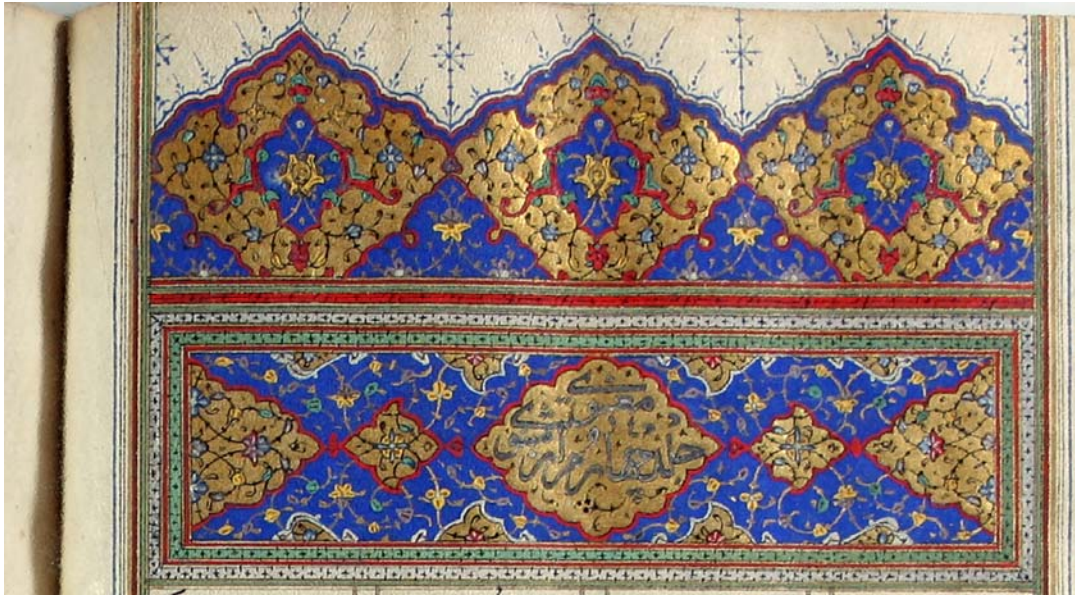 جلد چهارم از مثنوی
معنوی